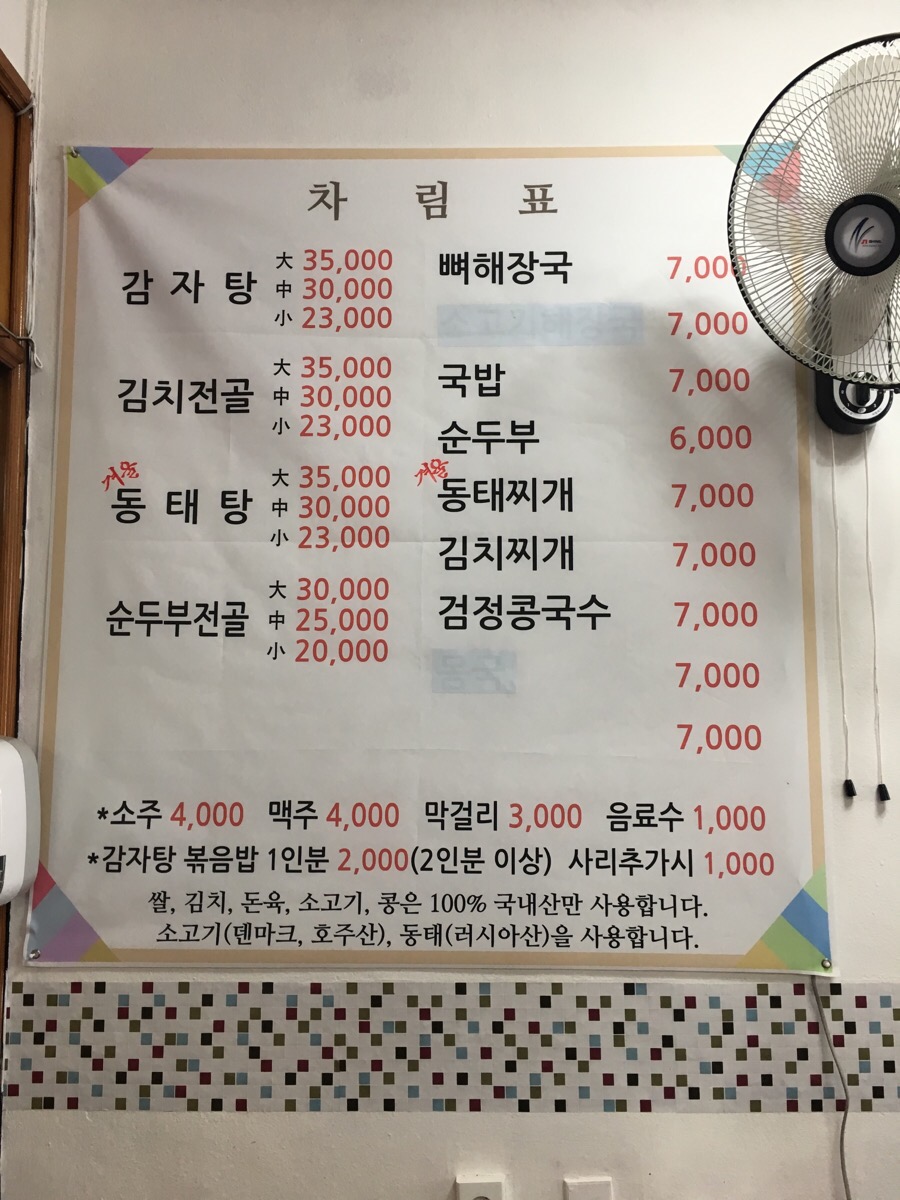 차 림 표
감 자 탕 大 35,000
中 30,000
小 23,000
김치전골 大 35,000
中 30,000
小 23,000
겨울
동 태 탕 大 35,000
中 30,000
小 23,000
순두부전골 大 30,000
中 25,000
小 20,000
뼈해장국 7,000
소고기해장국 7,000
국밥 7,000
순두부 6,000
겨울
동태찌개 7,000
김치찌개 7,000
검정콩국수 7,000
7,000
7,000
*소주 4,000 맥주 4,000 막걸리 3,000 음료수 1,000
*감자탕 볶음밥 1인분 2,000(2인분 이상) 사리추가시 1,000
쌀, 김치, 돈육, 소고기, 콩은 100% 국내산만 사용합니다.
소고기(덴마크, 호주산), 동태(러시아산)을 사용합니다.